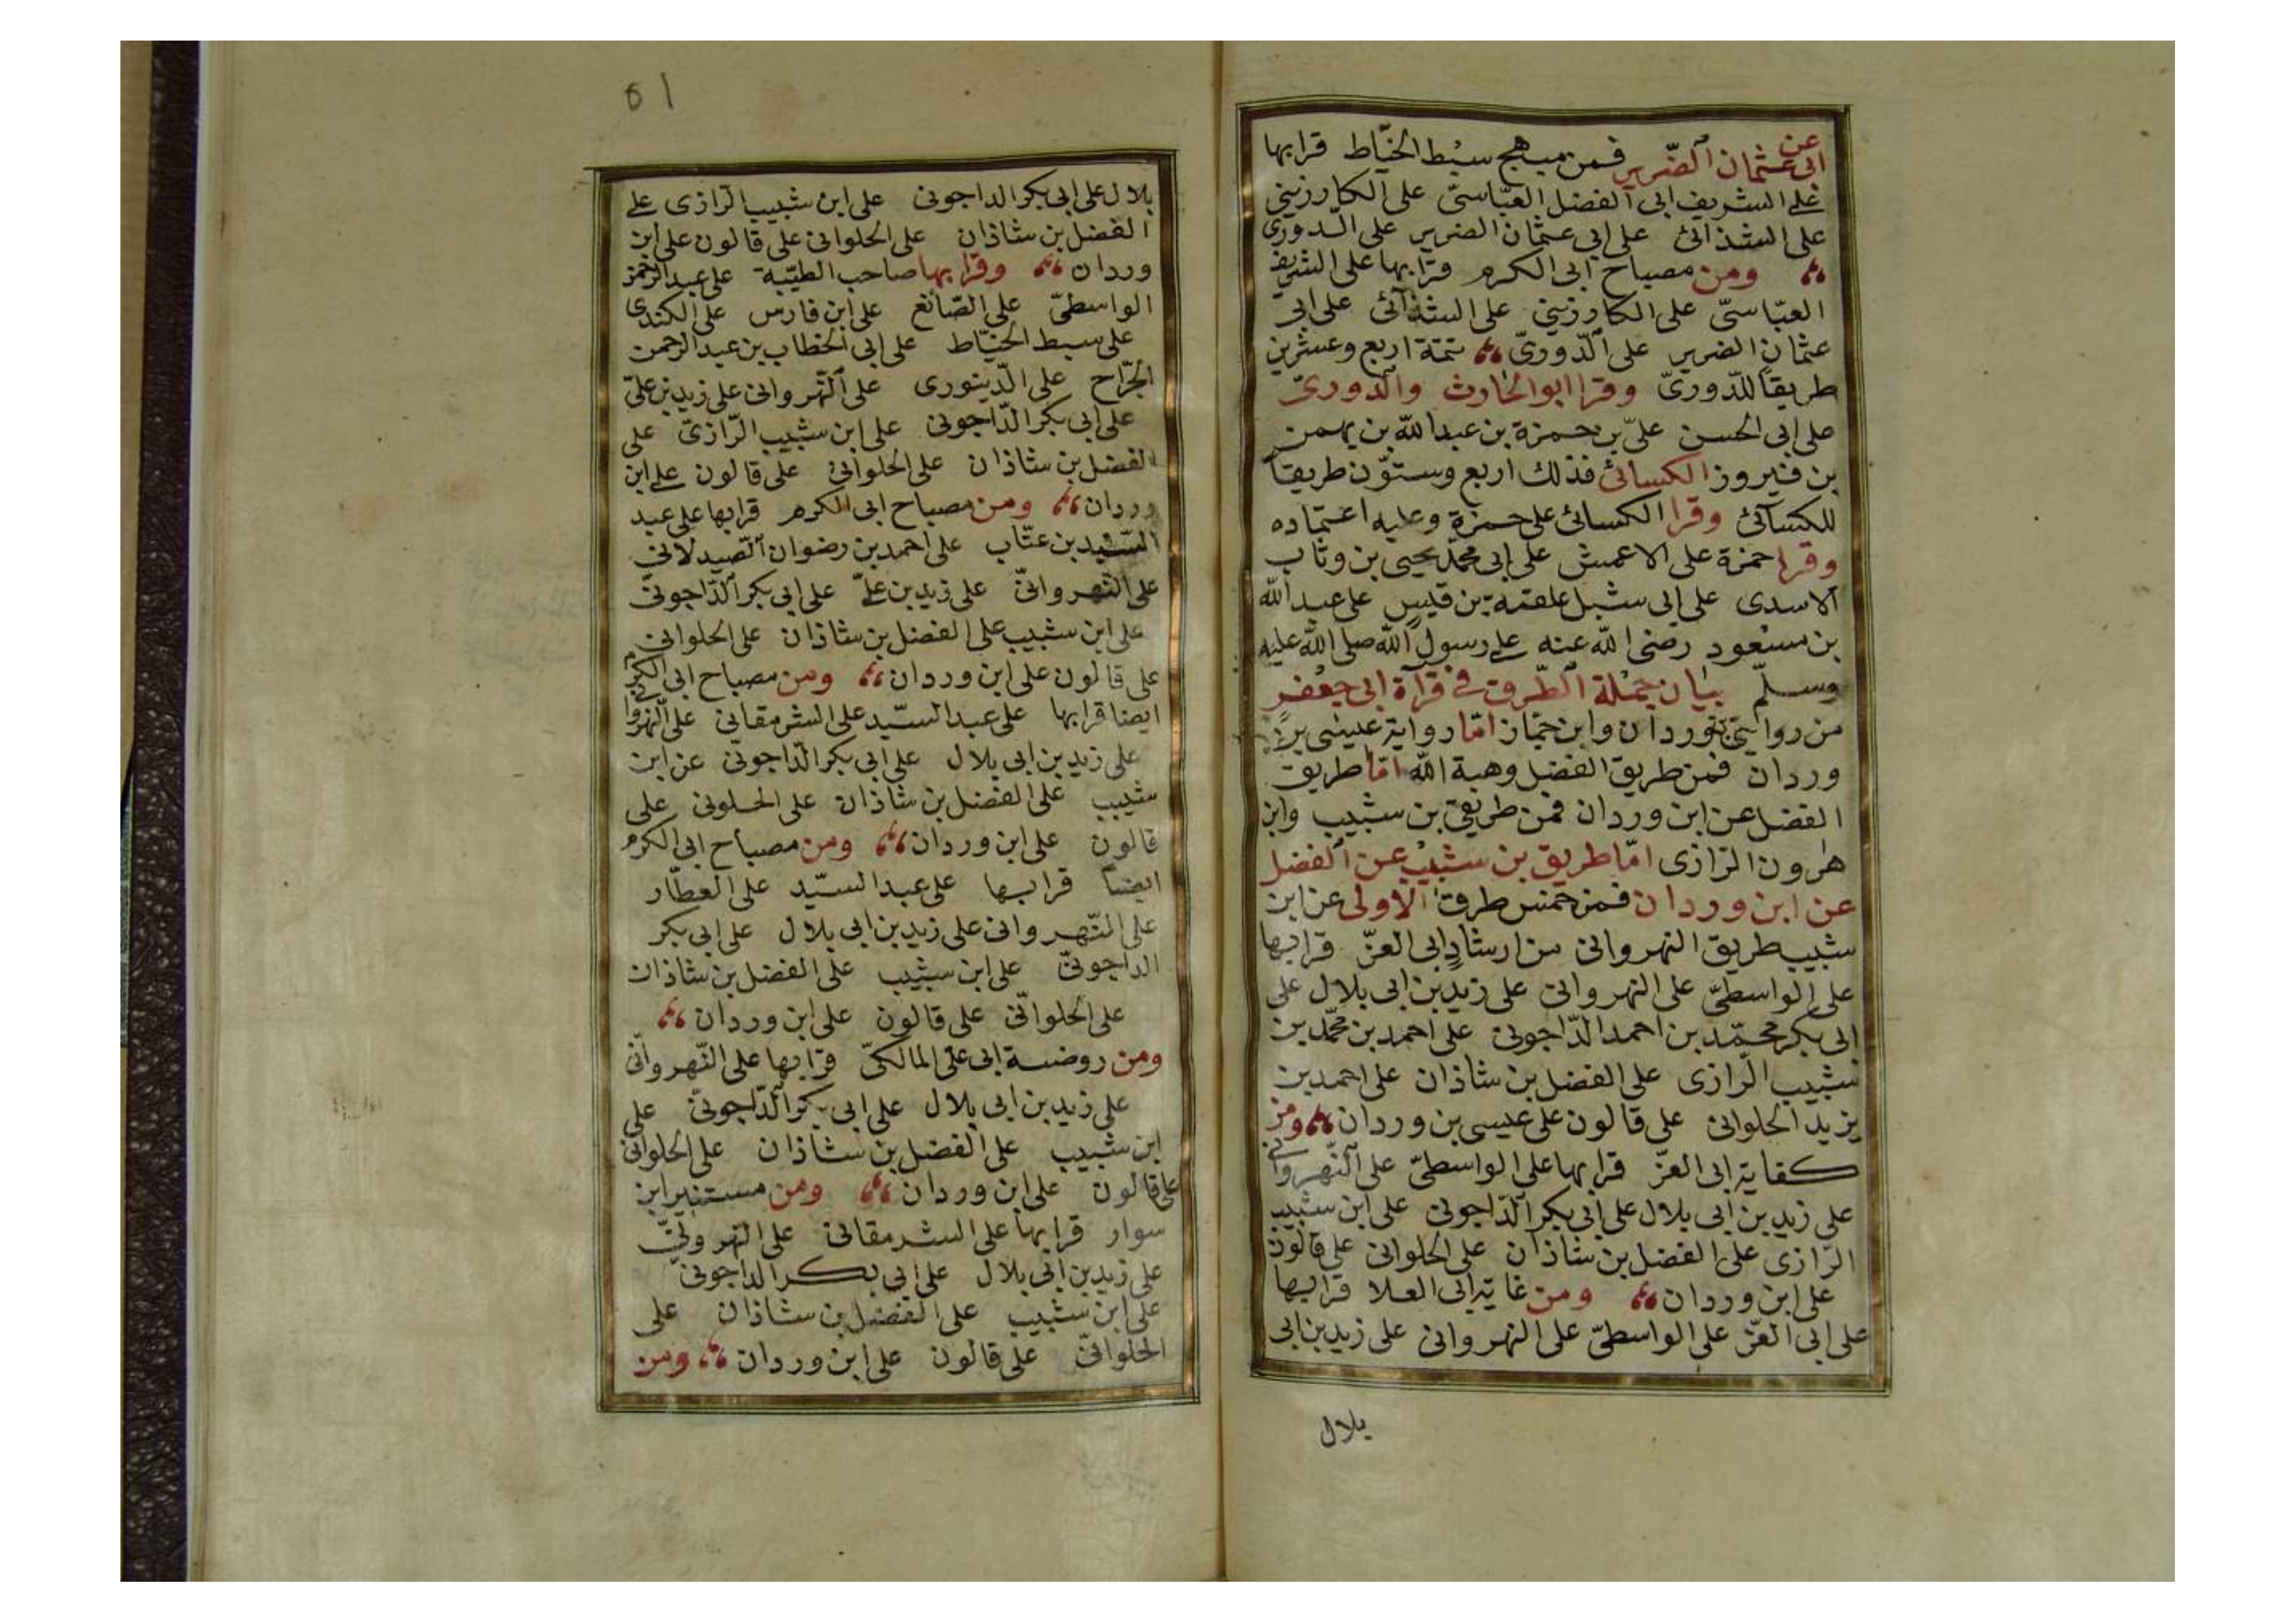 عن
ابى عثمان الضّرير فمن مبهج سبط الخيّاط قرا بها
على الشريف ابى الفضل العبّاسىّ على الكارزينى
على الشذائى على ابى عثمان الضرير على الدّورى
ومن مصباح ابى الكرم قرا بها على الشريف
العبّاسىّ على الكارزينى على الشذائى على ابى
عثمان الضرير على الدّورىّ تتمة اربع وعشرين
طريقاً للدّورىّ وقرا ابو الحارث والدّورىّ
على ابى الحسن علىّ بن حمزة بن عبد الله بن بهمن
بن فيروز الكسائى فذلك اربع وستّون طريقاً
للكسائى وقرا الكسائى على حمزة وعليه اعتماده
وقرا حمزة على الاعمش على ابى محمّد يحيى بن وثاب
الاسدى على ابى شبل علقمة بن قيس على عبد الله
بن مسعود رضى الله عنه على رسول الله صلى الله عليه
وسلّم بيان جملة الطّرق فى قرآة ابى جعفر
من روايتى وردان وابن جمّاز امّا رواية عيسى بن
وردان فمن طريق الفضل وهبة الله امّا طريق
الفضل عن ابن وردان فمن طريقى بن شبيب وابن
هٰرون الرّازى امّا طريق بن شبيب عن الفضل
عن ابن وردان فمن خمس طرق الاولى عن ابن
شبيب طريق النهروانى من ارشاد ابى العزّ قرا بها
على الواسطىّ على النهروانى على زيد بن ابى بلال على
ابى بكر محمّد بن احمد الدّاجونى على احمد بن محمّد بن
شبيب الرّازى على الفضل بن شاذان على احمد بن
يزيد الحلوانى على قالون على عيسى بن وردان ومن
كفاية ابى العزّ قرا بها على الواسطىّ على النّهروانى
على زيد بن ابى بلال على ابى بكر الدّاجونى على ابن شبيب
الرّازى على الفضل بن شاذان على الحلوانى على قالون
على ابن وردان ومن غاية ابى العلا قرا بها
على ابى العزّ على الواسطىّ على النهروانى على زيد بن ابى
بلال
٥١
بلال على ابى بكر الداجونى على ابن شبيب الرّازى على
الفضل بن شاذان على الحلوانى على قالون على ابن
وردان وقرا بها صاحب الطيّبة على عبد الرّحمن
الواسطىّ على الصّائغ على ابن فارس على الكندى
على سبط الخيّاط على ابى الخطاب بن عبد الرحمن
الجرّاح على الدّينورى على النّهروانى على زيد بن علىّ
على ابى بكر الدّاجونى على ابن شبيب الرّازىّ على
الفضل بن شاذان على الحلوانى على قالون على ابن
وردان ومن مصباح ابى الكرم قرا بها على عبد
السّيد بن عتّاب على احمد بن رضوان الصّيدلانى
على النّهروانىّ على زيد بن علىّ على ابى بكر الدّاجونىّ
على ابن شبيب على الفضل بن شاذان على الحلوانى
على قالون على ابن وردان ومن مصباح ابى الكرم
ايضا قرا بها على عبد السّيد على الشرمقانى على النّهروانى
على زيد بن ابى بلال على ابى بكر الدّاجونىّ عن ابن
شبيب على الفضل بن شاذان على الحلونى على
قالون على ابن وردان ومن مصباح ابى الكرم
ايضاً قرا بها على عبد السّيد على العطّار
على النّهروانى على زيد بن ابى بلال على ابى بكر
الداجونىّ على ابن شبيب على الفضل بن شاذان
على الحلوانّى على قالون على ابن وردان
ومن روضة ابى على المالكىّ قرا بها على النّهروانى
على زيد بن ابى بلال على ابى بكر الدّاجونىّ على
ابن شبيب على الفضل بن شاذان على الحلوانى
على قالون على ابن وردان ومن مستنير ابن
سوار قرا بها على الشرمقانى على النهروانىّ
على زيد بن ابى بلال على ابى بكر الداجونىّ
على ابن شبيب على الفضل بن شاذان على
الحلوانىّ على قالون على ابن وردان ومن